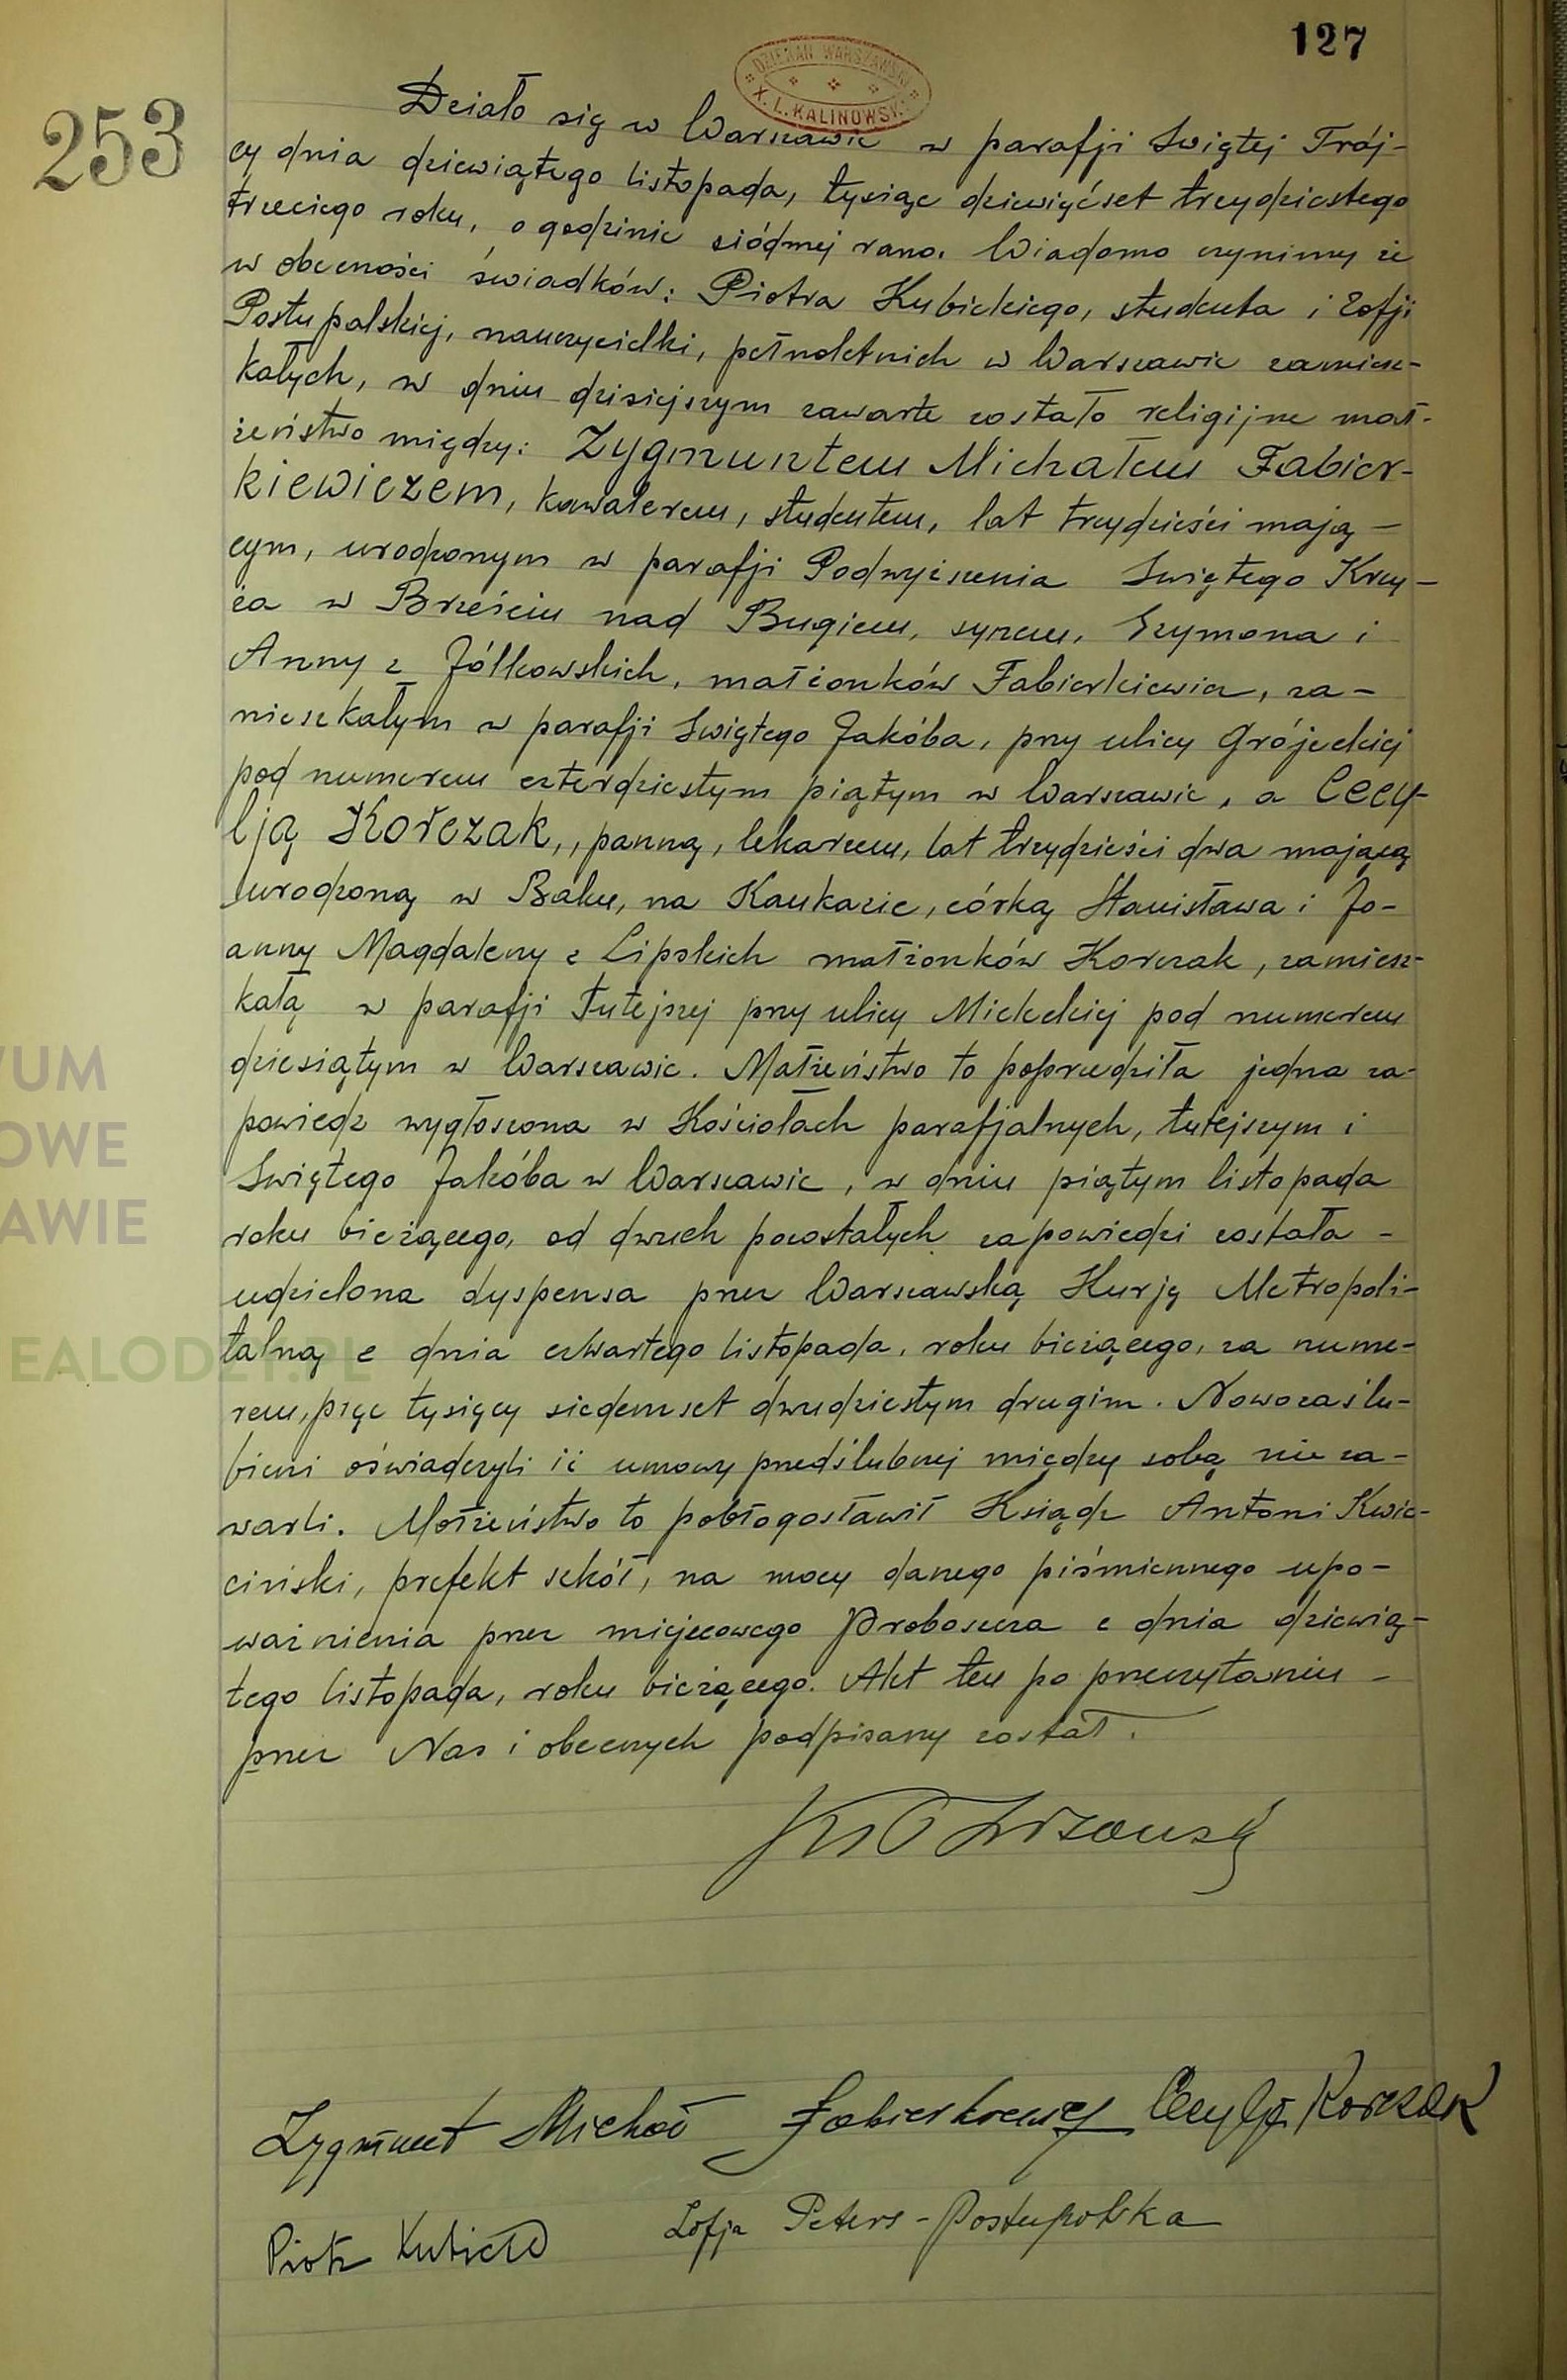 127
DZIEKAN WARSZAWSKI
X. L. KALINOWSKI
253
Działo się w Warszawie w parafji Swiętej Trój-
cy dnia dziewiątego listopada, tysiąc dziewięćset trzydziestego
trzeciego roku, o godzinie siódmej rano. Wiadomo czynimy że
w obecności świadków: Piotra Kubickiego, studenta i Zofji
Postupalskiej, nauczycielki, pełnoletnich w Warszawie zamiesz-
kałych, w dniu dzisiejszym zawarte zostało religijne mał-
żeństwo między: Zygmuntem Michałem Fabier-
kiewiczem, kawalerem, studentem, lat trzydzieści mają-
cym, urodzonym w parafji Podwyższenia Swiętego Krzy-
ża w Brześciu nad Bugiem, synem, Szymona i
Anny z Jółkowskich, małżonków Fabierkiewicz, za-
mieszkałym w parafji Swiętego Jakóba, przy ulicy Grójeckiej
pod numerem czterdziestym piątym w Warszawie, a Cecy-
lją Korczak,, panną, lekarzem, lat trzydzieści dwa mającą
urodzoną w Baku, na Kaukazie, córką Stanisława i Jo-
anny Magdaleny z Lipskich małżonków Korczak, zamiesz-
kałą w parafji tutejszej przy ulicy Mickckiej pod numerem
dziesiątym w Warszawie. Małżeństwo to poprzedziła jedna za-
powiedz wygłoszona w Kościołach parafjalnych, tutejszym i
Swiętego Jakóba w Warszawie, w dniu piątym listopada
roku bieżącego, od dwuch pozostałych zapowiedzi została -
udzielona dyspensa przez Warszawską Kurję Metropoli-
talną z dnia czwartego listopada, roku bieżącego, za nume-
rem, pięć tysięcy siedemset dwudziestym drugim. Nowozaślu-
bieni oświadczyli iż umowy przedślubnej między sobą nie za-
warli. Małżeństwo to pobłogosławił Ksiądz Antoni Kwie-
ciński, prefekt szkół, na mocy danego piśmiennego upo-
ważnienia przez miejscowego Proboszcza z dnia dziewią-
tego listopada, roku bieżącego. Akt ten po przeczytaniu -
przez Nas i obecnych podpisany został.
Zygmunt Michał Fabierkiewicz Cecylja Korczak
Piotr Kubicki Zofja Peters-Postupolska
WUM
OWE
AWIE
EALOD21.PL